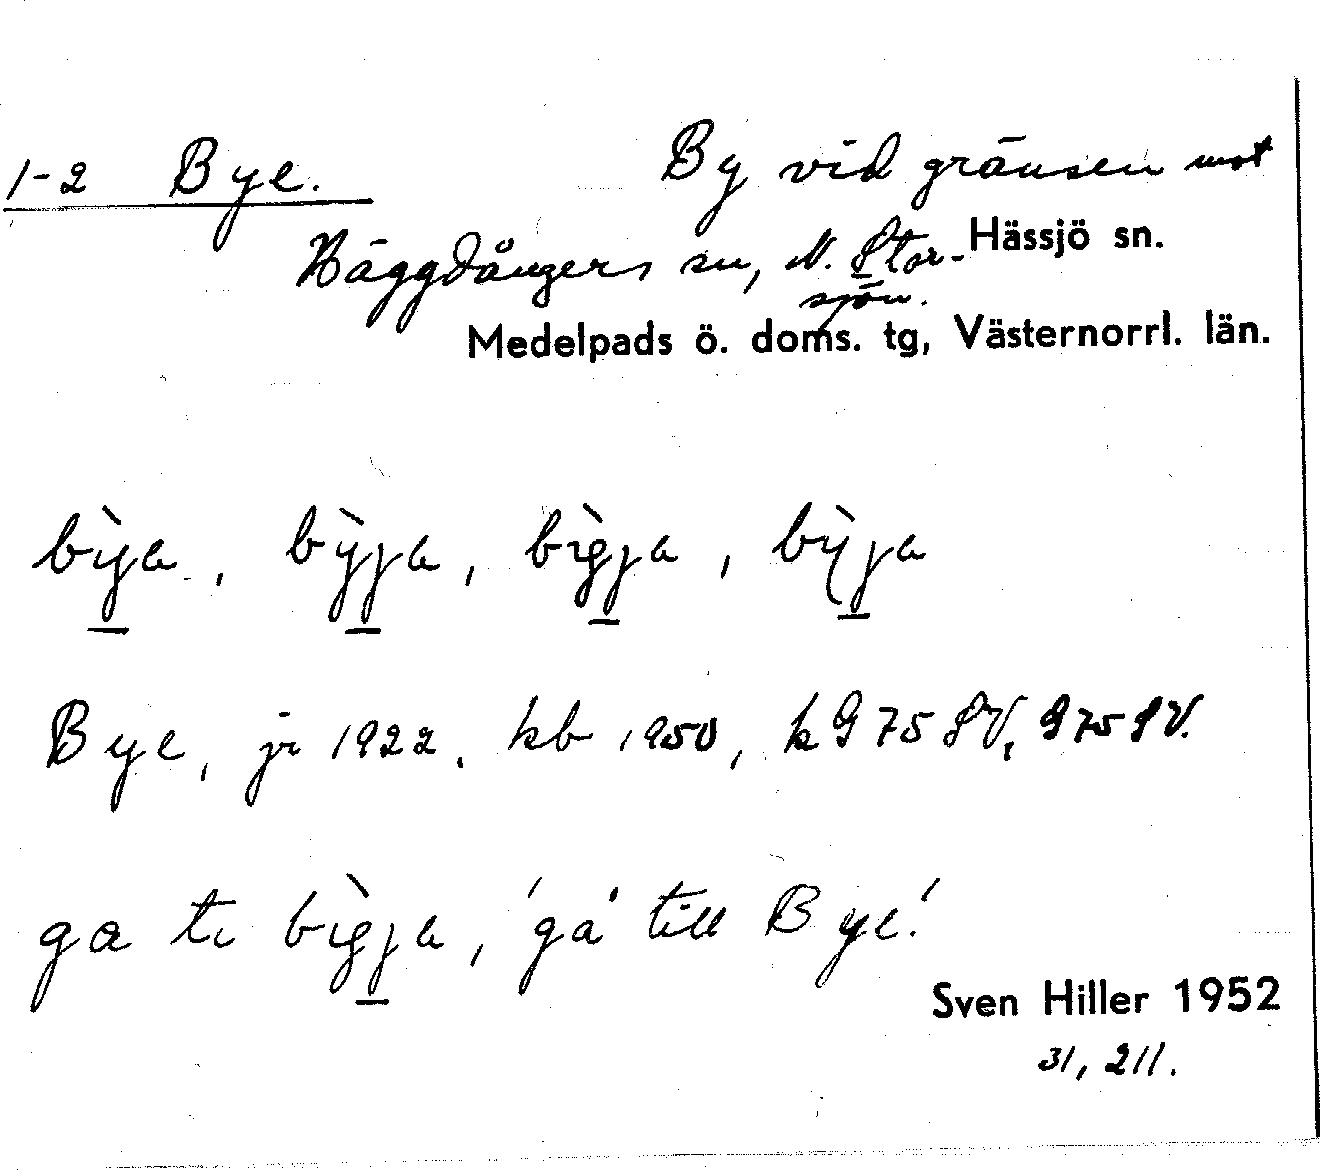 1-2 Bye. By vid gränsen mot
Häggdångers sn, N. Stor-
Hässjö sn.
sjön.
Medelpads ö. doms. tg, Västernorrl. län.
bỳja, bỳja, bìgja, bỳja
Bye, jr 1922, kb 1950, k G 75 SV, G 75 SV.
ga ti bìgja, 'gå till Bye'.
Sven Hiller 1952
31, 211.